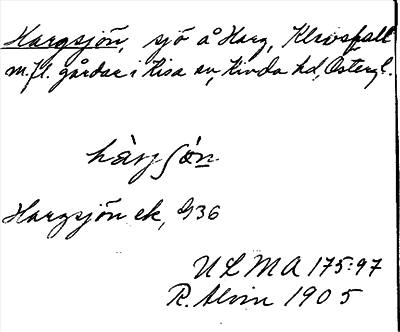 Hargsjön, sjö å Harg, Klevsfall
m.fl. gårdar i Kisa sn, Kinda hd, Östergl.
Hargsjön ek, 936
ULMA 175:97
R. Alvin 1905